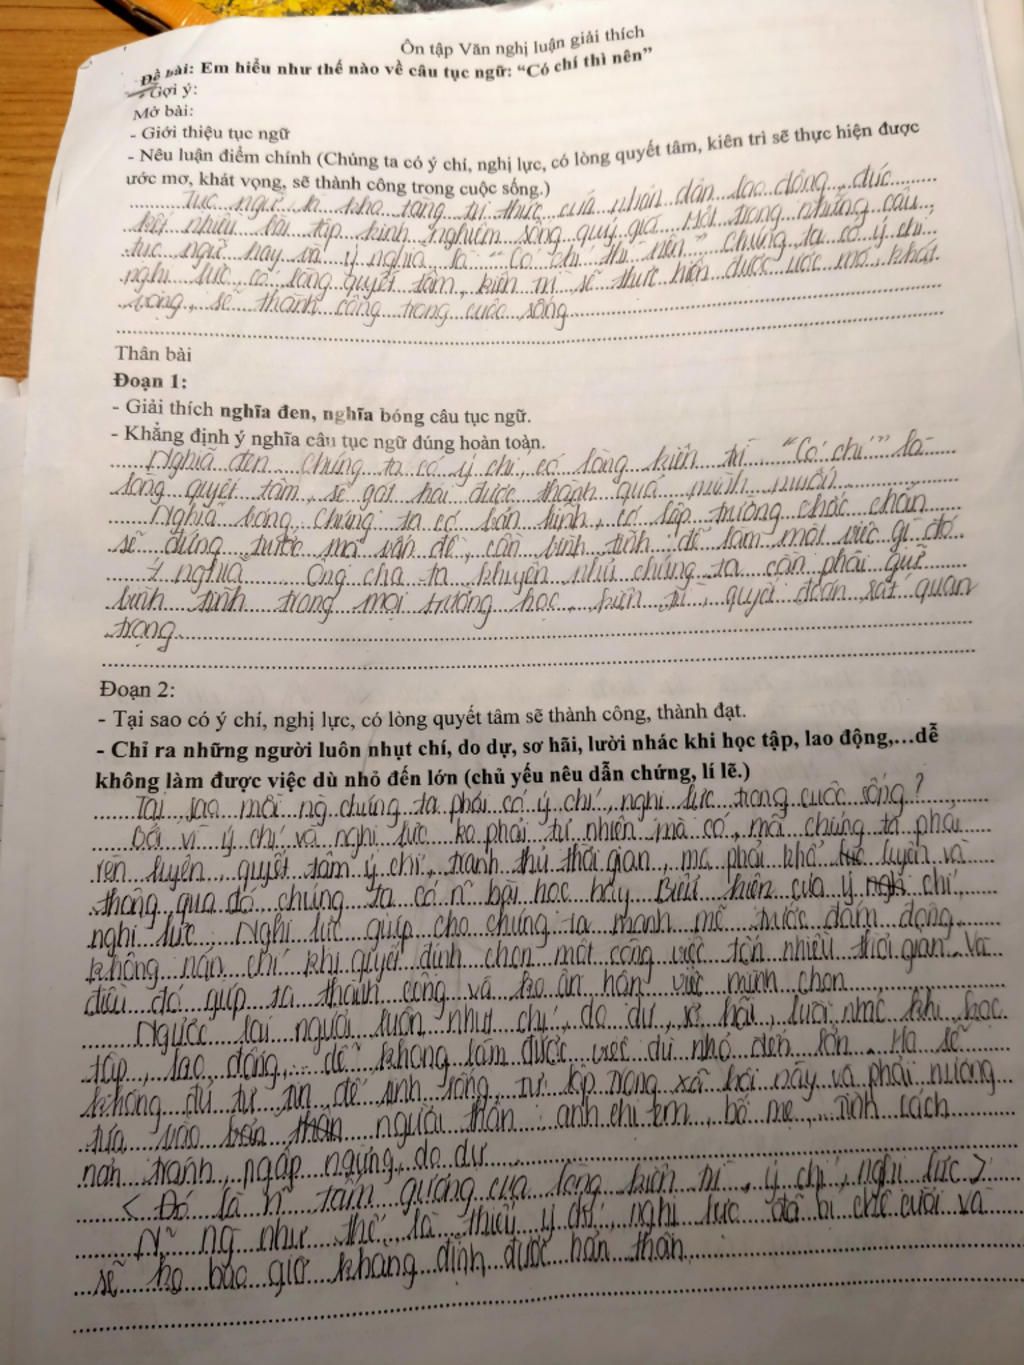 Ôn tập Văn nghị luận giải thích
Đề bài: Em hiểu như thế nào về câu tục ngữ: “Có chí thì nên”
- Gợi ý:
Mở bài:
- Giới thiệu tục ngữ
- Nêu luận điểm chính (Chúng ta có ý chí, nghị lực, có lòng quyết tâm, kiên trì sẽ thực hiện được
ước mơ, khát vọng, sẽ thành công trong cuộc sống.)
Tục ngữ là kho tàng tri thức của nhân dân lao động, đúc
kết nhiều bài tập kinh nghiệm sống quý giá. Một trong những câu
tục ngữ hay và ý nghĩa là “Có chí thì nên”. Chúng ta có ý chí
nghị lực, có lòng quyết tâm, kiên trì sẽ thực hiện được ước mơ, khát
vọng, sẽ thành công trong cuộc sống
Thân bài
Đoạn 1:
- Giải thích nghĩa đen, nghĩa bóng câu tục ngữ.
- Khẳng định ý nghĩa câu tục ngữ đúng hoàn toàn.
Nghĩa đen chúng ta có ý chí, có lòng kiên trì. “Có chí” là
lòng quyết tâm, sẽ gặt hái được thành quả mình muốn
Nghĩa bóng chúng ta có bản lĩnh, có lập trường chắc chắn
sẽ đứng trước mọi vấn đề, cần bình tĩnh để làm một việc gì đó
Ý nghĩa Ông cha ta khuyên nhủ chúng ta cần phải giữ
bình tĩnh trong mọi trường học, kiên trì, quyết đoán rất quan
trọng
Đoạn 2:
- Tại sao có ý chí, nghị lực, có lòng quyết tâm sẽ thành công, thành đạt.
- Chỉ ra những người luôn nhụt chí, do dự, sơ hãi, lười nhác khi học tập, lao động,…dễ
không làm được việc dù nhỏ đến lớn (chủ yếu nêu dẫn chứng, lí lẽ.)
Tại sao mỗi ng chúng ta phải có ý chí, nghị lực trong cuộc sống?
Bởi vì ý chí và nghị lực ko phải tự nhiên mà có, mà chúng ta phải
rèn luyện, quyết tâm ý chí, tranh thủ thời gian, mà phải khổ luyện và
thông qua đó chúng ta có n~ bài học hay. Biểu hiện của ý chí,
nghị lực. Nghị lực giúp cho chúng ta mạnh mẽ trước đám đông,
không nản chí khi quyết định chọn một công việc tốn nhiều thời gian. Và
điều đó giúp ta thành công và ko ân hận việc mình chọn
Ngược lại người luôn nhụt chí, do dự, sợ hãi, lười nhác khi học
tập, lao động,... dễ không làm được việc dù nhỏ đến lớn. Họ sẽ
không đủ tự tin để sinh sống, tự lập trong xã hội này và phải nương
tựa vào người thân : anh chị em, bố mẹ, tính cách
nản tránh, ngập ngừng, do dự
< Đó là n~ tấm gương của lòng kiên trì, ý chí, nghị lực >
N~ ng như thế là thiếu ý chí, nghị lực đã bị chê cười và
sẽ ko bao giờ khẳng định được bản thân